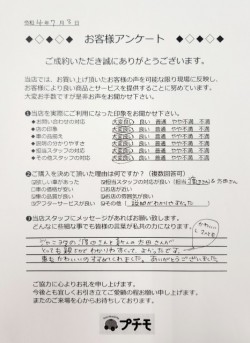 令和4年7月3日
お客様アンケート
ご成約いただき誠にありがとうございます。
当店では、お買い上げ頂いたお客様の声を可能な限り現場に反映し、
お客様により良い商品とサービスを提供することに努めています。
大変お手数ですが是非お声をお聞かせ下さい。
❶当店を実際にご利用になった印象をお聞かせ下さい。
●お問い合わせの対応 大変良い 良い 普通 やや不満 不満
●店の印象 大変良い 良い 普通 やや不満 不満
●車の品揃え 大変良い 良い 普通 やや不満 不満
●説明の分かりやすさ 大変良い 良い 普通 やや不満 不満
●査定スタッフの対応 大変良い 良い 普通 やや不満 不満
●その他スタッフの対応 大変良い 良い 普通 やや不満 不満
❷ご購入を決めて頂いた理由は何ですか？（複数回答可）
□欲しい車があった
□担当スタッフの対応が良い（担当
□車の価格が安い
□お店が近い
□車の品質が良い
□店の雰囲気が良い
□アフターサービスが良い
□その他（説明がわかりやすかった）
❸当店スタッフにメッセージがあればお願い致します。
どんなに些細な事でも皆様の言葉が私共の力になります。
とても親切でわかりやすくて、よかったです。
車もかわいいのをすすめてくれました。ありがとうございました。
ご協力に心よりお礼を申し上げます。
今後とも宜しくお引き立てご愛顧の程お願い申し上げます。
またのご来場を心からお待ちしております。
プチモ